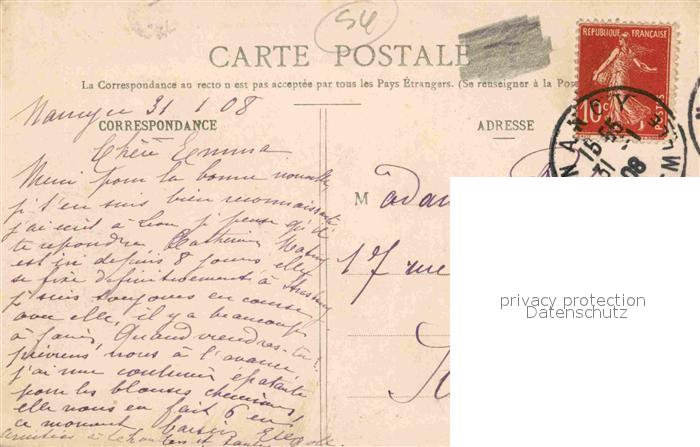 54
CARTE POSTALE
La Correspondance au recto n est pas acceptée par tous les Pays Étrangers. (Se renseigner à la Pos
REPUBLIQUE FRANÇAISE
10c POSTES
NANCY
15 55
31 1
08
Nancy le 31 1 08
CORRESPONDANCE
ADRESSE
Chère Emma
Merci pour la bonne nouvelle
je t'en suis bien reconnaissante
j'ai écrit à Léon je pense qu'il
te répondra. Catherine
est ici depuis 8 jours elle
se fixe définitivement à
je suis toujours en course
avec elle, il y a beaucoup
à faire. Quand viendras-tu?
préviens nous à l'avance,
j'ai une couturière épatante
pour les blouses chemises
elle nous en fait 6 en
ce moment Baisers
à et
Madam
17 rue
privacy protection
Datenschutz